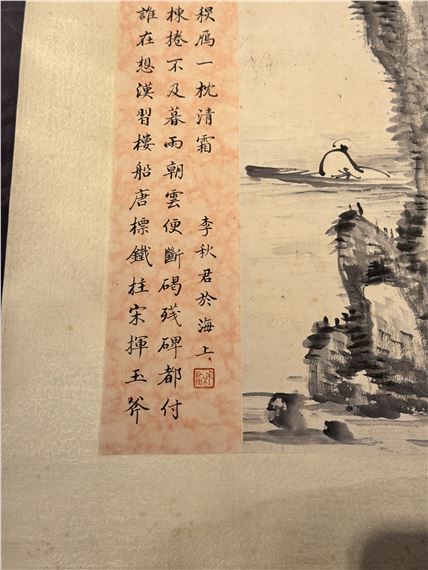 誰在想漢習樓船唐標鐵柱宋揮玉斧
棟捲不及暮雨朝雲便斷碣殘碑都付
秋鴈一枕清霜
李秋君於海上